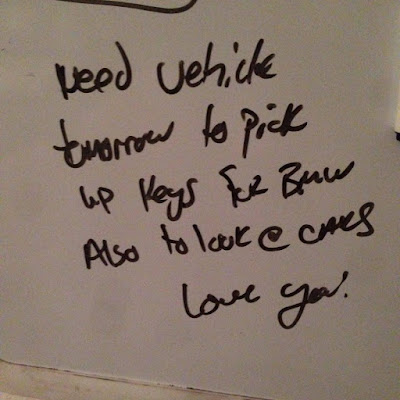 Need vehicle
tomorrow to pick
up keys for BMW
Also to look @ cars
Love you!